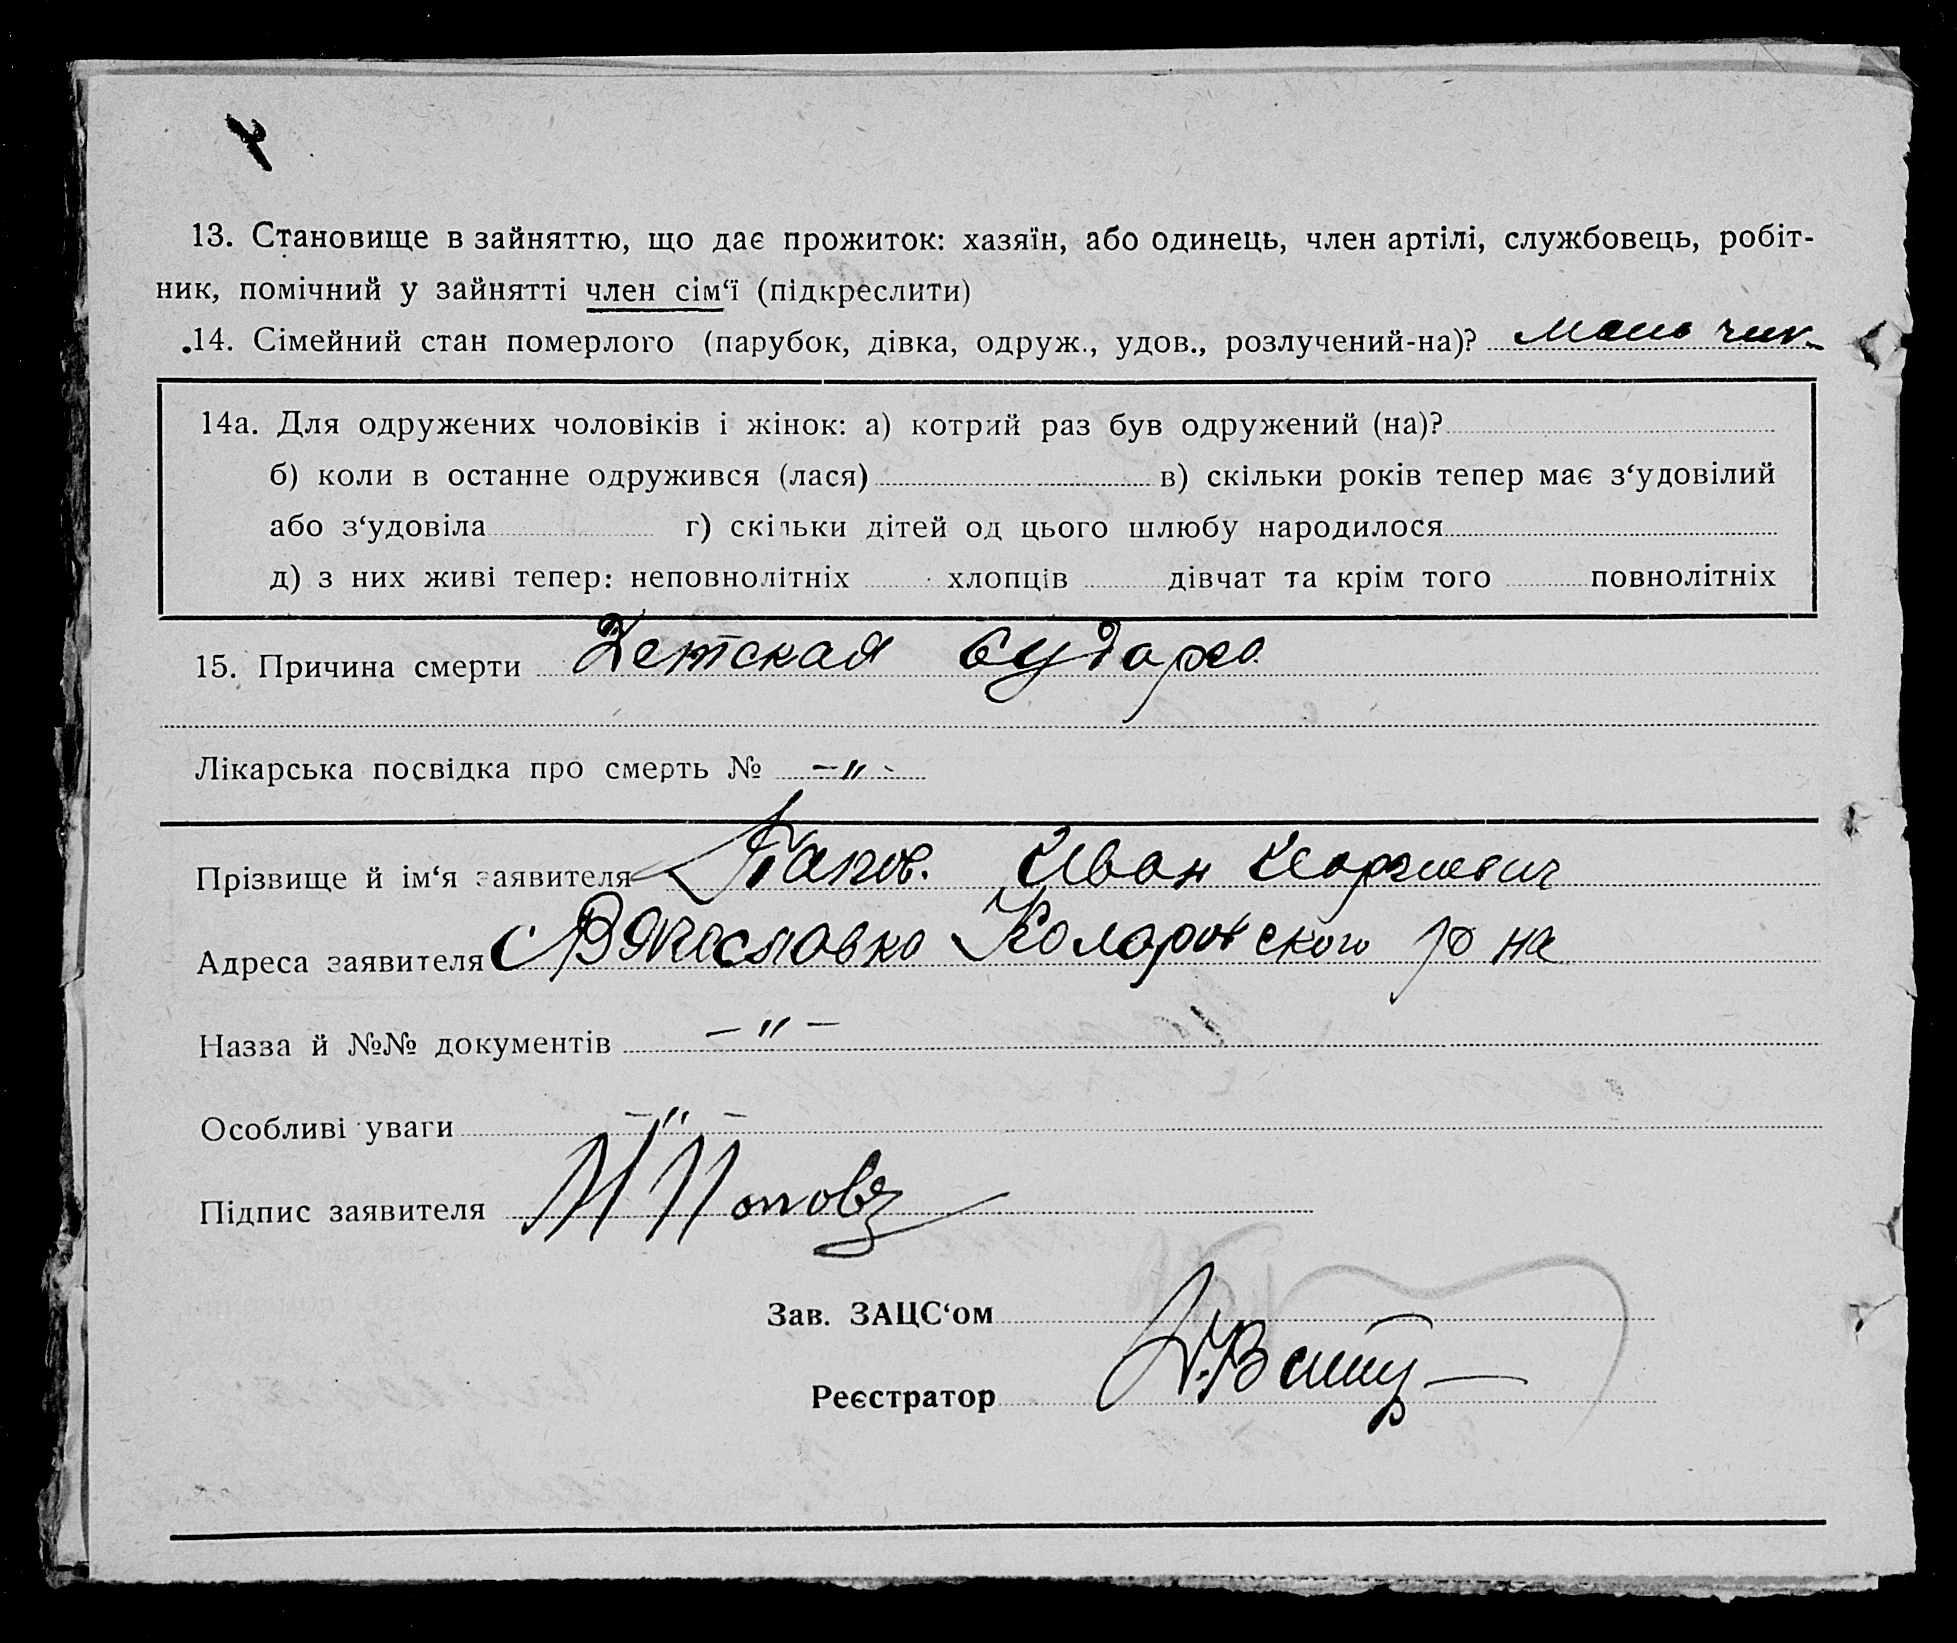 13. Становище в зайняттю, що дає прожиток: хазяїн, або одинець, член артілі, службовець, робіт-
ник, помічний у зайнятті член сім‘ї (підкреслити)
14. Сімейний стан померлого (парубок, дівка, одруж., удов., розлучений-на)? мальчик
14а. Для одружених чоловіків і жінок: а) котрий раз був одружений (на)?
б) коли в останне одружився (лася) в) скільки років тепер має з‘удовілий
або з‘удовіла г) скільки дітей од цього шлюбу народилося
д) з них живі тепер: неповнолітніх хлопців дівчат та крім того повнолітніх
15. Причина смерти Детская
Лікарська посвідка про смерть № –„-
Прізвище й ім‘я заявителя Папов. Иван
Адреса заявителя С Вячеславка Коларовского р на
Назва й №№ документів –„–
Особливі уваги –„–
Підпис заявителя И Поповъ
Зав. ЗАЦС‘ом
Реєстратор